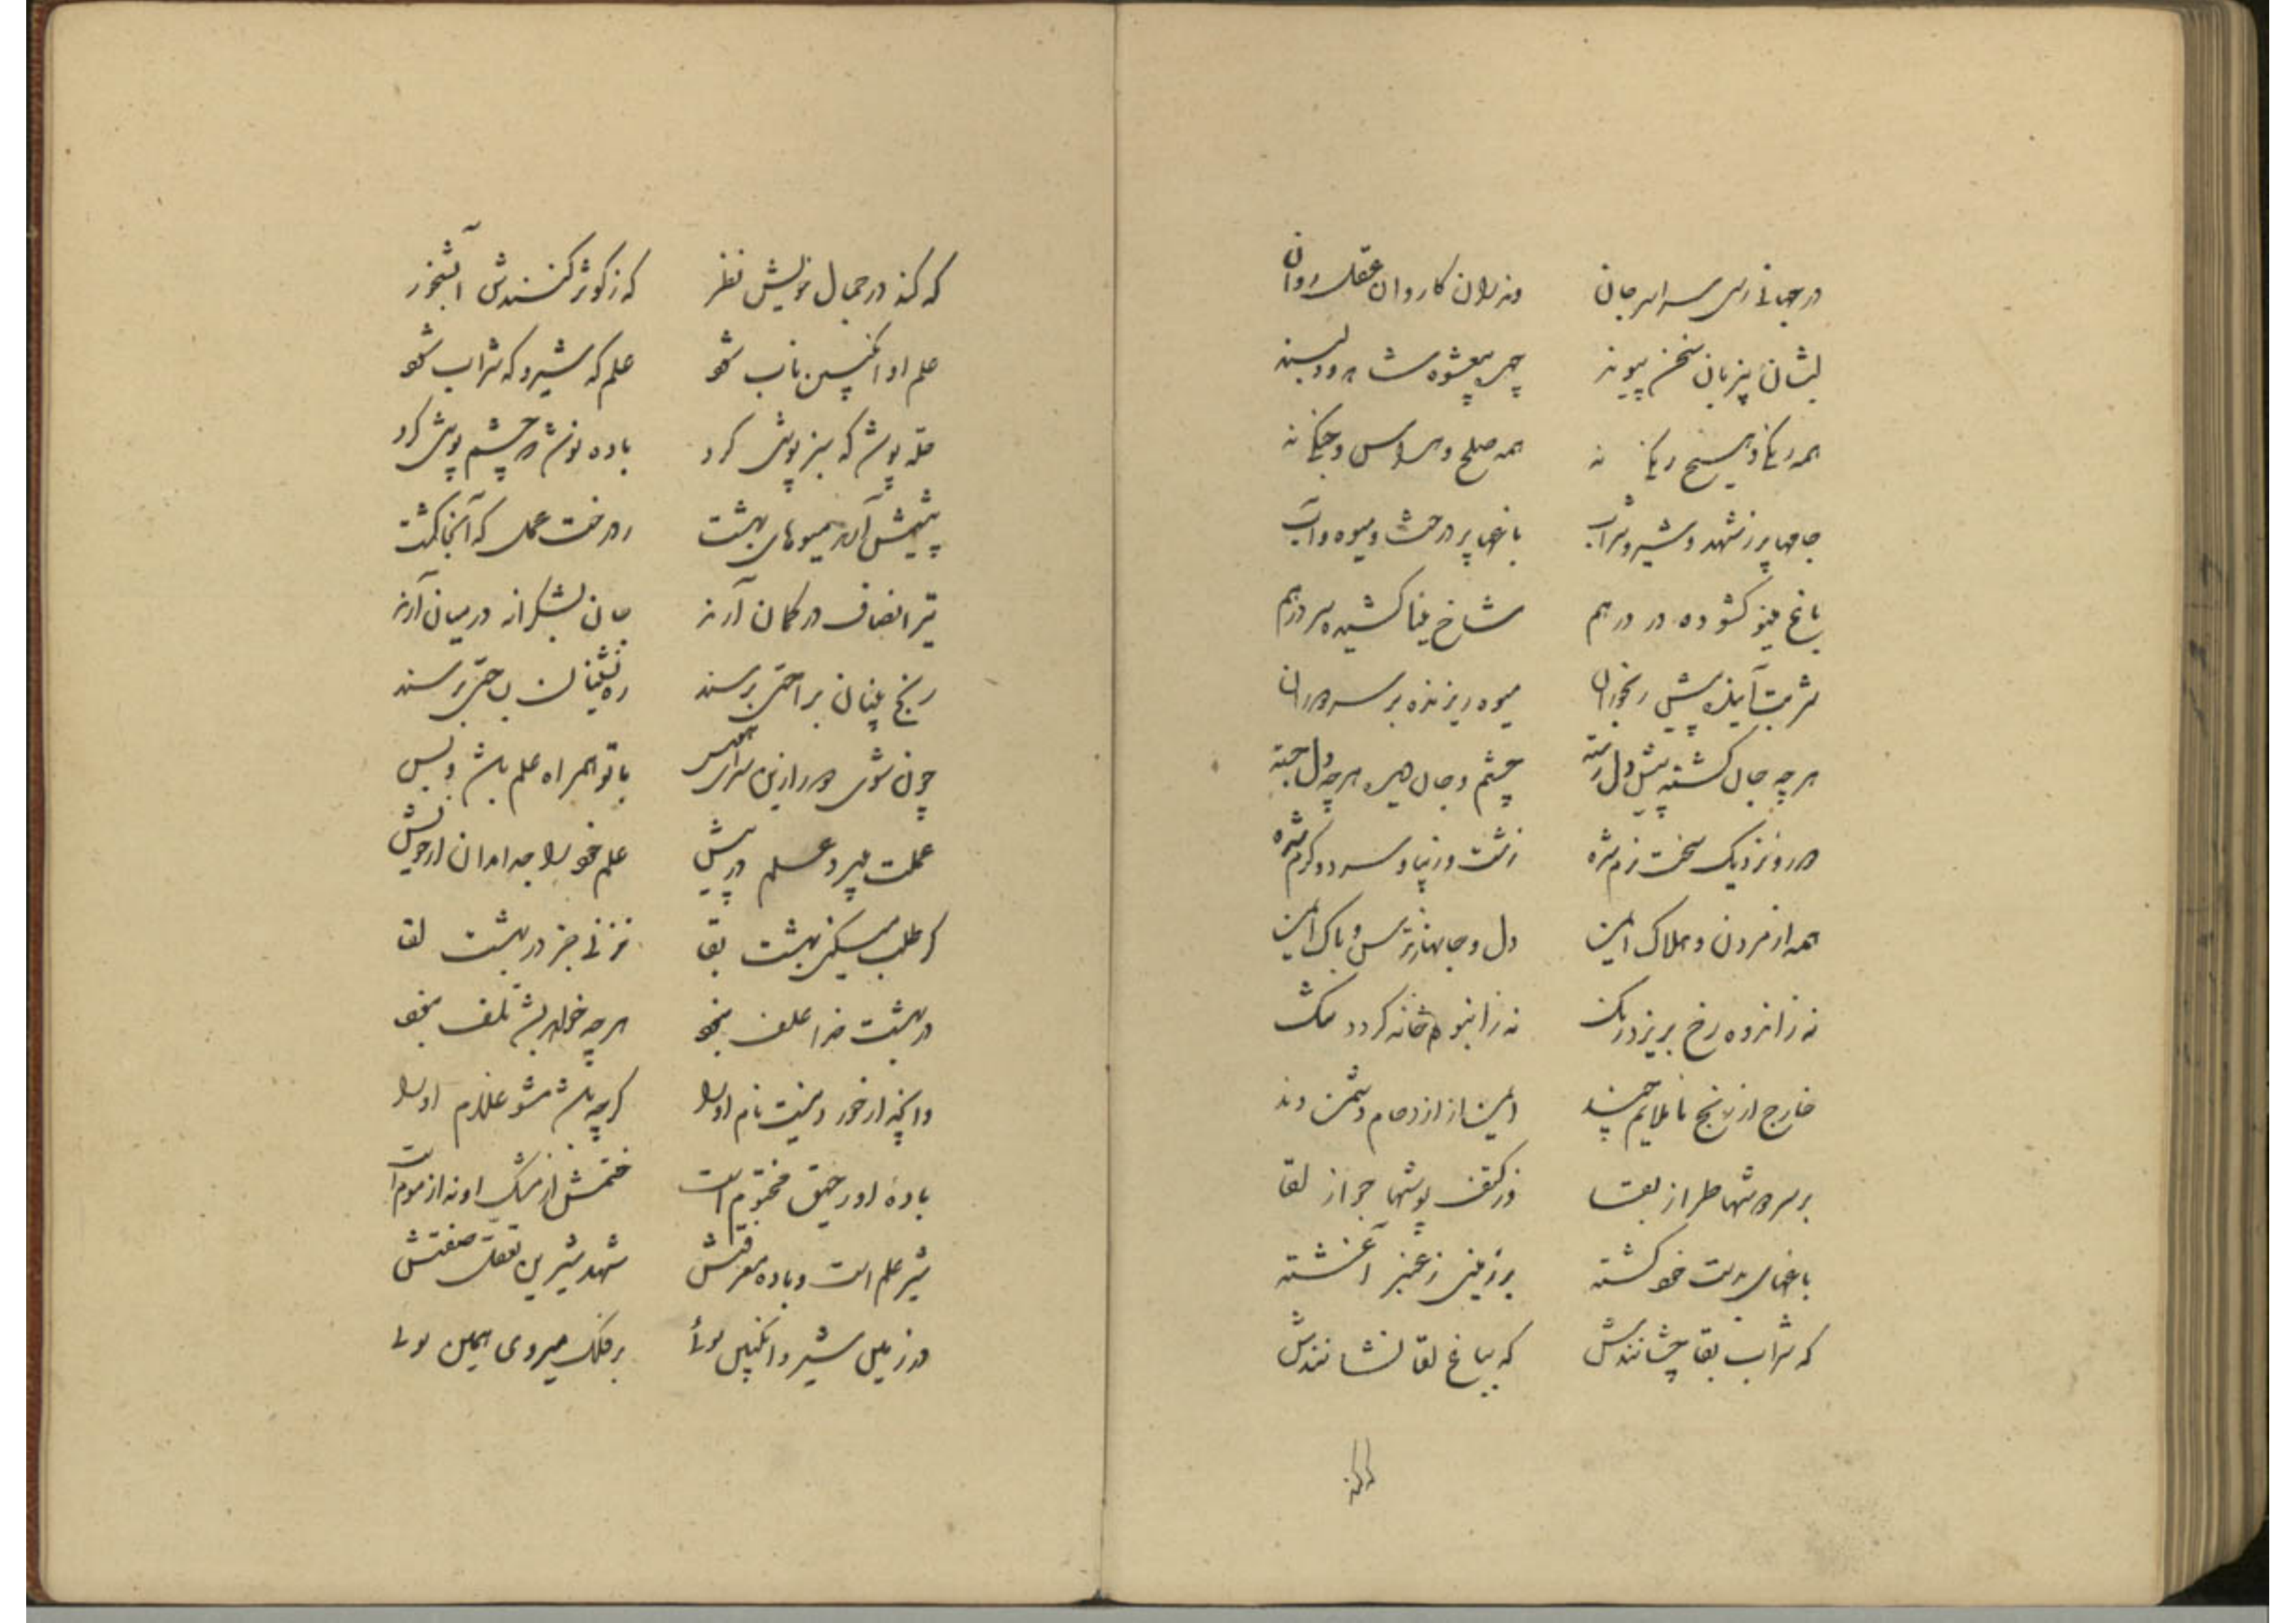 در جهانی رسی سراسر جان وندران کاروان عقل روان
لبشان بیزبان سخن پیوند چهره بیعشوه شاهد و دلبند
همه یکتا و هیچ یکتا نه همه صلح و هراس و جنگ نه
جامها پر ز شهد و شیر و شراب باغها پر درخت و میوه و آب
باغ مینو گشوده در در هم شاخ مینا کشیده سر در هم
شربت آینده پیش رنجوران میوه ریزنده بر سر دوران
هرچه جان گشته پیش دل رسته چشم و جان دیده هرچه دل جسته
دور و نزدیک سخت نرم شده زشت و زیبا و سرد و گرم شده
همه از مردن و هلاک ایمن دل و جانها ز ترس و باک ایمن
نه ز اندوه رخ بریزد رنگ نه ز انبوه خانه گردد تنگ
خارج از رنج ناملایم چند ایمن از ازدحام دشمن وند
بر سر دوشها طراز بقا وز کتف پوشها جواز لقا
باغهای بدست خود کشته بر زمینی ز عنبر آغشته
که شراب بقا چشانندش که بباغ لقا نشانندش
که کند در جمال خویش نظر که ز کوثر کنندش آبشخور
علم او انگبین ناب شود علم که شیر و که شراب شود
حله پوش که سبز پوش کرد باده نوش که چشم پوش کرد
پیشش آرد میوهای بهشت درخت عمل که آنجا کشت
تیر انصاف در کمان آرند جان بشکرانه در میان آرند
رنج بینان براحتی برسند ره نشینان بساحتی برسند
چون شوی دور ازین سرای هوس با تو همراه علم باشد و بس
عملت میرود علم در پیش علم خود را جدا مدان از خویش
گر طلب میکنی بهشت بقا نزنی جز در بهشت لقا
در بهشت خدا علف نبود هر چه خواهی بشد تلف نبود
وانچه از خورد نیست نام او را گرچه باشد مشو غلام او را
بادهٔ او رحیق مختوم است ختمش از مشک او نه از موم است
شیر علم است و باده معرفتش شهد شیرین تعقل صفتش
در زمین شیر و انگبین بوئی بر فلک میروی همین بوئی